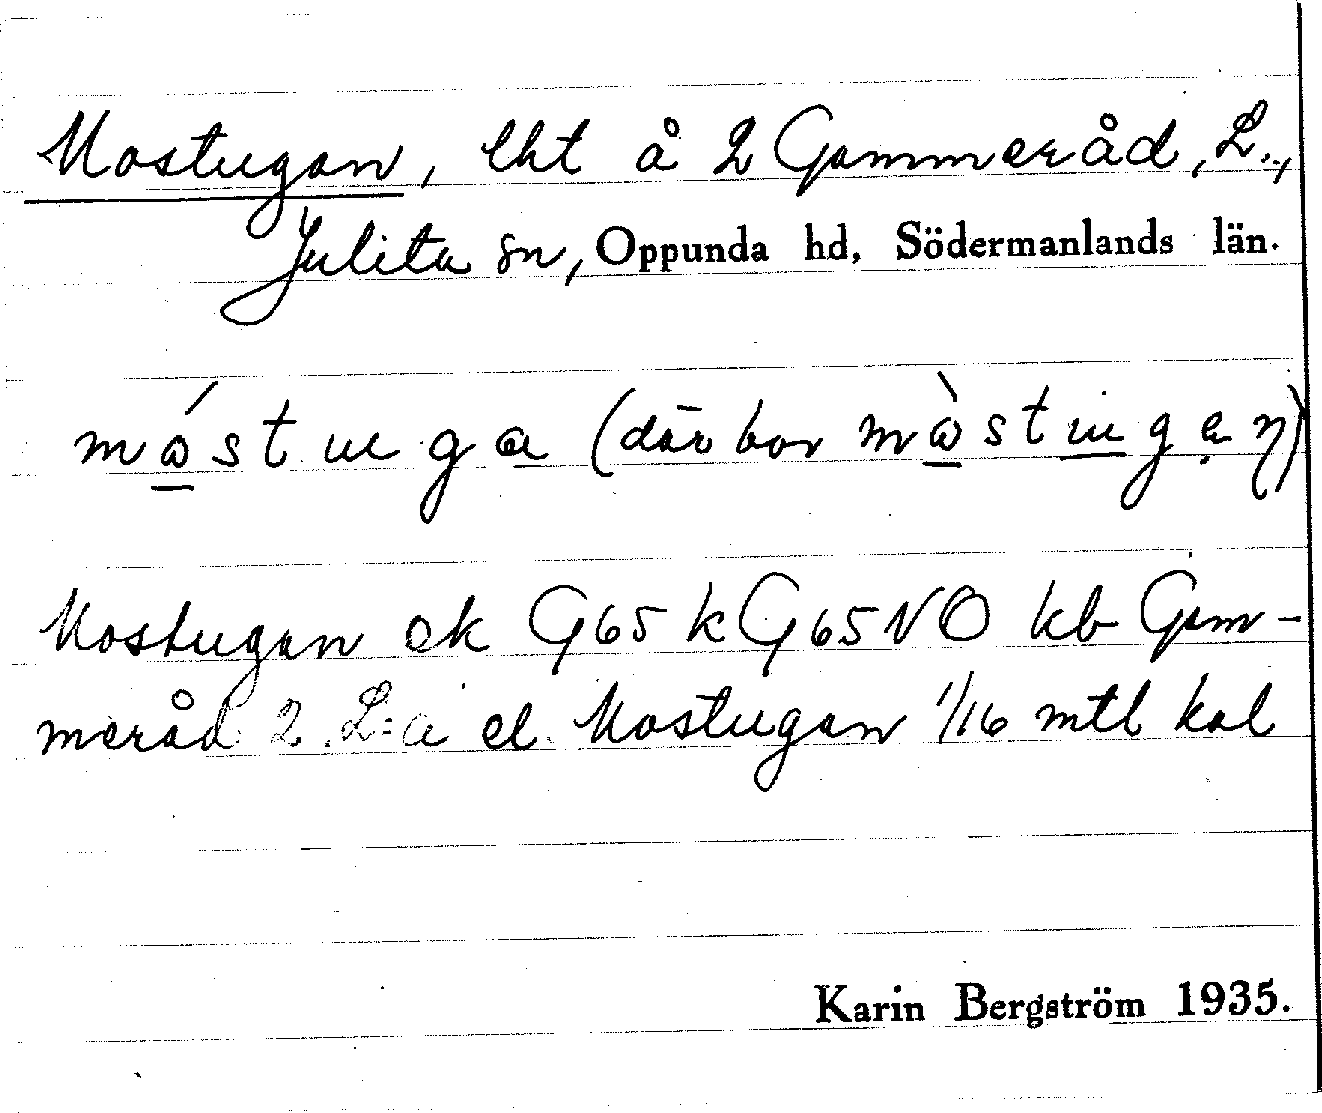 Mostugan, lht å 2 Gammeråd, L.,
Julita sn, Oppunda hd, Södermanlands län.
(där bor
Mostugan ek G65 k G65NO kb Gam-
meråd 2 L:a el. Mostugan 1/16 mtl kal
Karin Bergström 1935.